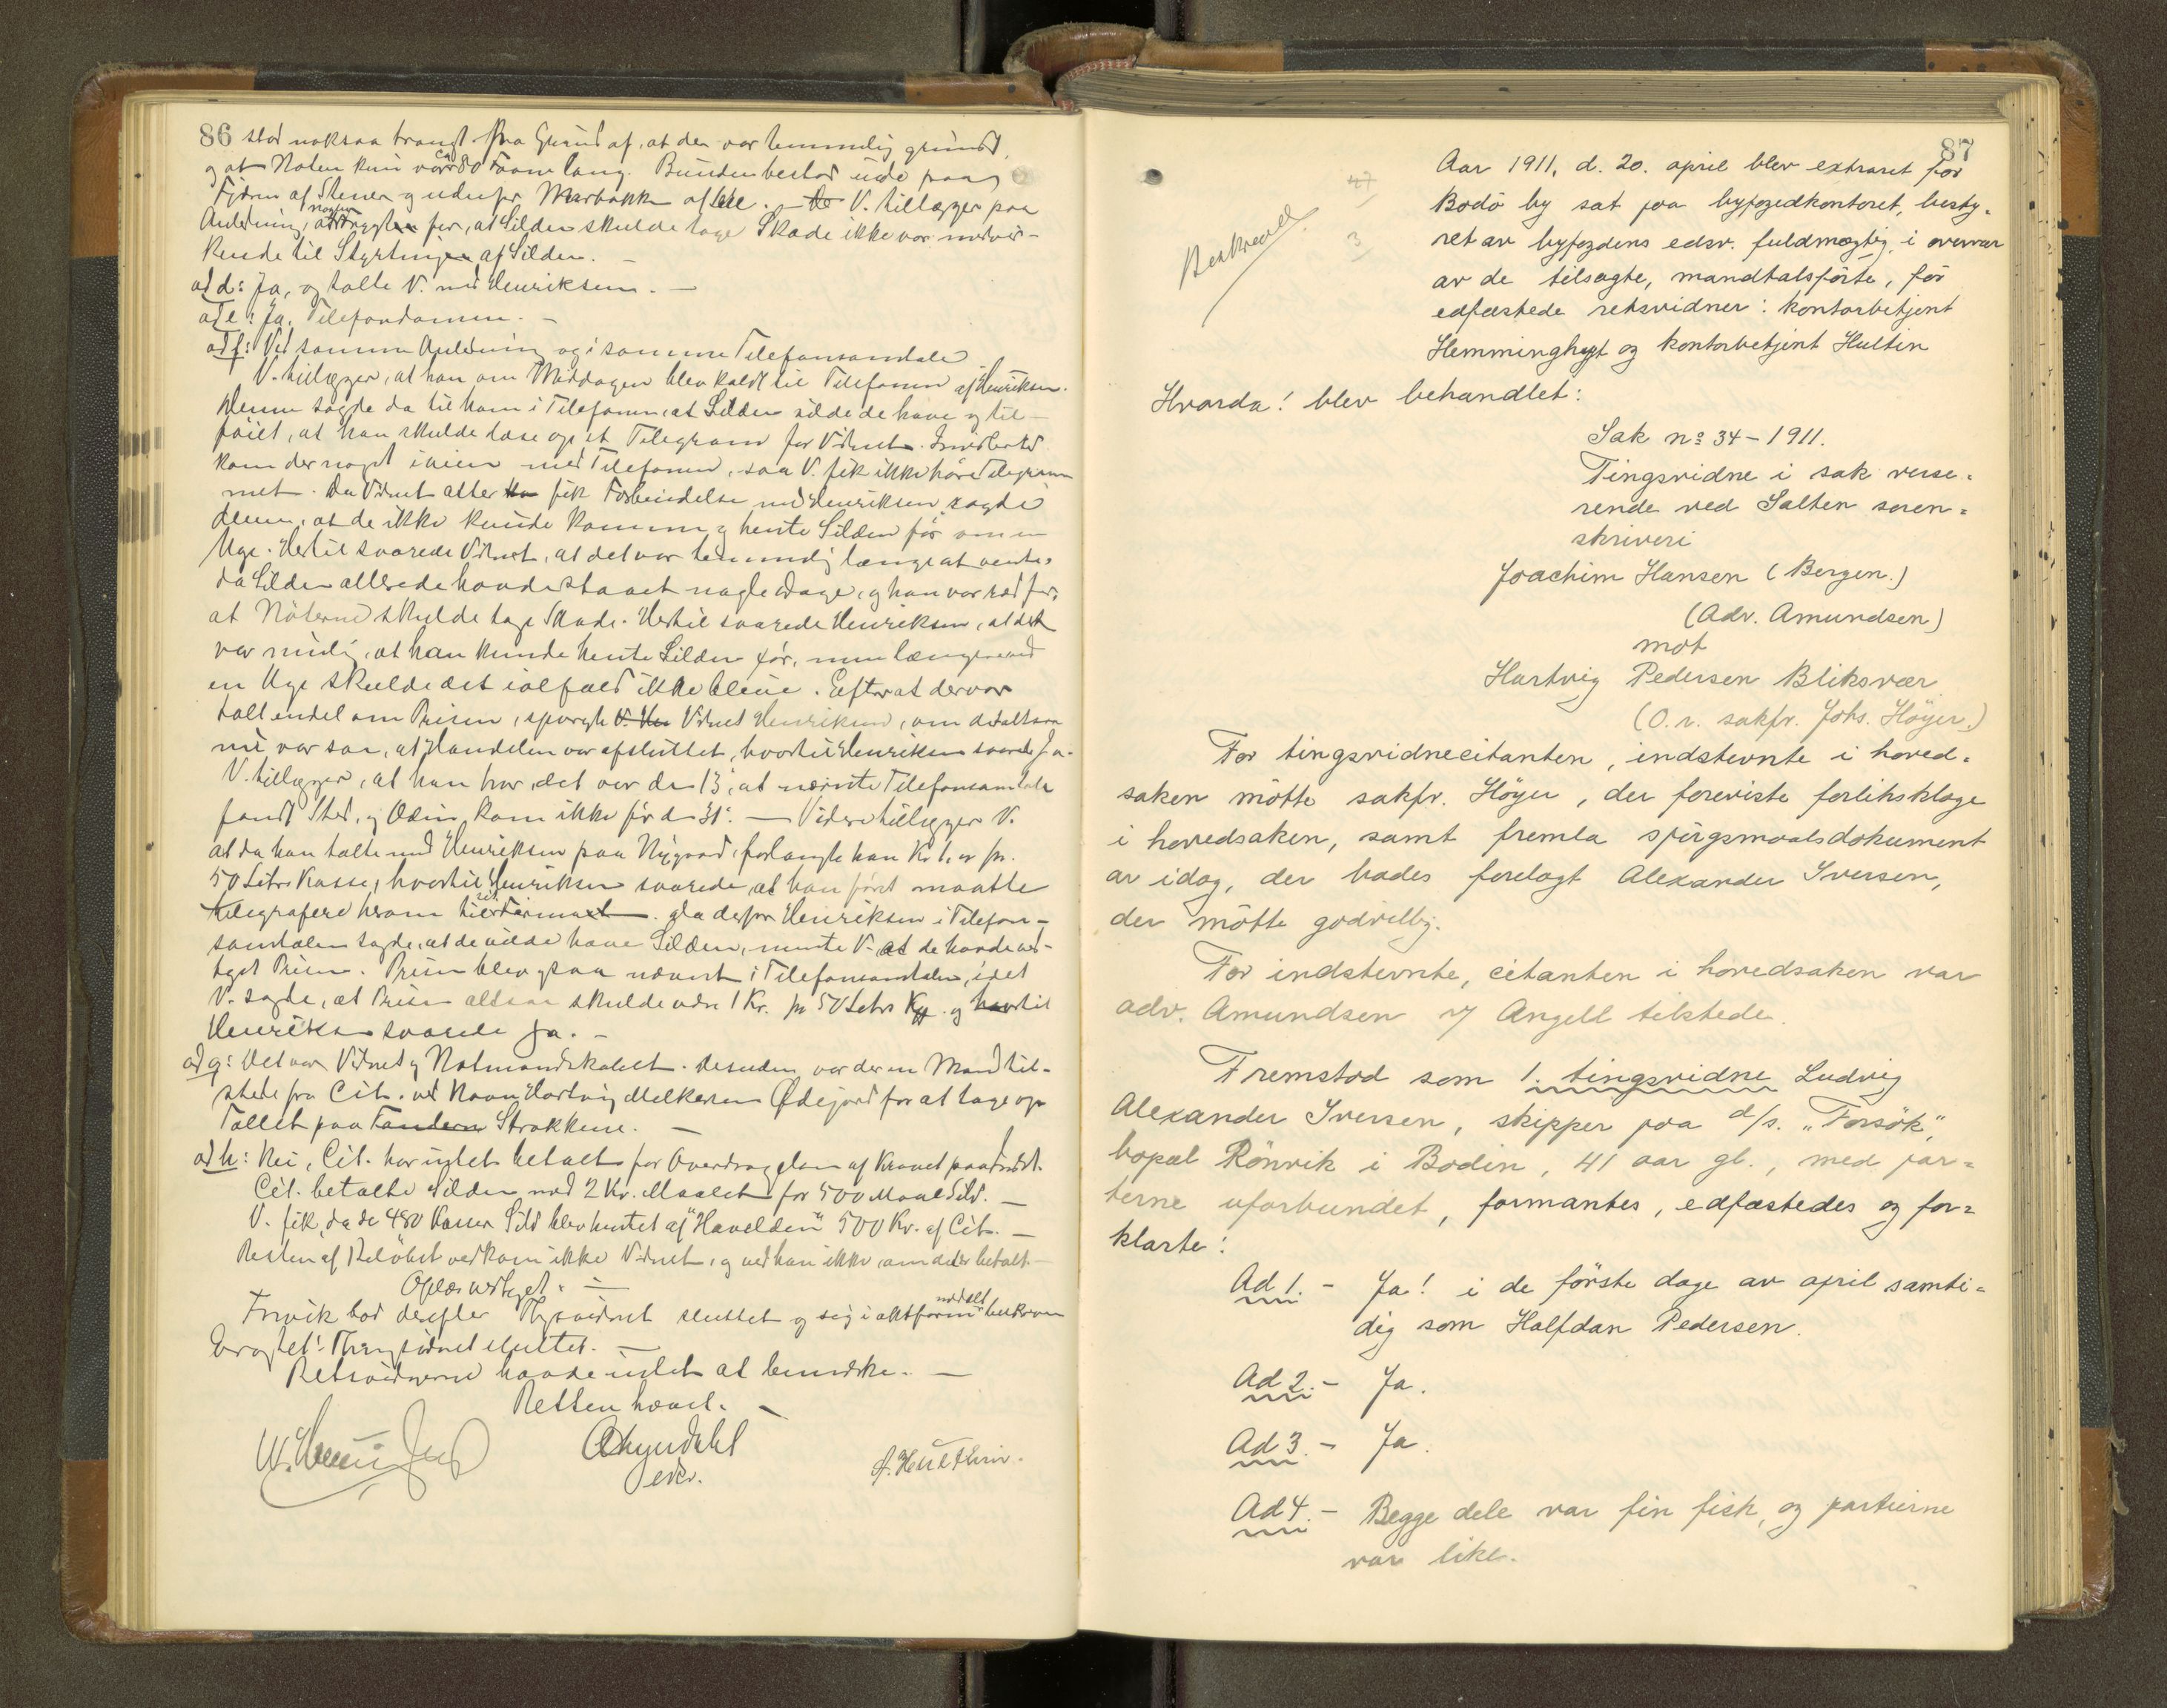 86 stod noksaa trangt paa Grund af, at den var temmelig grundt,
og at Noten kun var ca 80 Favne lang. Bunden bestod inde paa
Fjæren af Stener og udenfor Marbakken af Lere. – De V. tillægger paa
Anledning, at nogen Frygt for, at Silden skulde tage Skade ikke var medvir-
kende til Styrtningen af Silden. –
ad d: Ja, og talte V. med Henriksen. –
ad e: Ja. Telefondamen. –
ad f: Ved samme Anledning og i samme Telefonsamtale
V. tillægger, at han om Middagen blev kaldt til Telefonen af Henriksen.
Denne sagde da til ham i Telefonen, at Silden vilde de have og til-
føiet, at han skulde læse op et Telegram for Vidnet. Imidlertid
kom der noget iveien med Telefonen, saa V. fik ikke høre Telegram
met. Da Vidnet atter fik Forbindelse med Henriksen sagde
denne, at de ikke kunde komme og hente Silden før om en
Uge. Hertil svarede Vidnet, at det var temmelig længe at vente,
da Silden allerede havde staaet nogle Dage, og han var ræd for,
at Nöterne skulde tage Skade. Hertil svarede Henriksen, at det
var mulig, at han kunde hente Silden før, men længere end
en Uge skulde det ialfald ikke blive. Efterat der var
talt endel om Prisen, spurgte V. Vidnet Henriksen, om det altsaa
nu var saa, at Handelen var afsluttet, hvortil Henriksen svarede Ja.
V. tillægger, at han tror, det var den 13', at nævnte Telefonsamtale
fandt Sted, og Odin kom ikke før d 31'. – Videre tillægger V.
at da han talte med Henriksen paa Nygaard, forlangte han Kr 1,00 pr.
50 Liters Kasse, hvortil Henriksen svarede, at han først maatte
telegrafere herom til sit Firma. Da derfor Henriksen i Telefon-
samtalen sagde, at de vilde have Silden, mente V. at de havde ved-
taget Prisen. Prisen blev ogsaa nævnt i Telefonsamtalen, idet
V. sagde, at Prisen altsaa skulde være 1 Kr. pr 50 Liters Ks. og hertil
Henriksen svarede Ja. –
ad g: Det var Vidnet og Notmandskabet. Desuden var der en Mand til-
stede fra Cit. ved Navn Hartvig Melkersen Ødejord for at tage op
Tallet paa Strokkene. –
ad h: Nei, Cit. har intet betalt for Overdragelsen af Kravet paa Indst.
Cit. betalte Silden med 2 Kr. Maalet for 500 Maal Sild. –
V. fik, da de 480 Kasser Sild blev hentet af "Havelden" 500 Kr. af Cit. –
Resten af Beløbet vedkom ikke Vidnet, og ved han ikke, om det er betalt. –
Oplæst vedtaget. –
Ervik bad derefter Thgsvidnet sluttet og sig i aktform meddelt beskreven
Eragtet: Thingsvidnet sluttet. –
Retsvidnerne havde intet at bemærke. –
Retten hævet. –
edsv.
A. Hulthin.
87
Aar 1911, d. 20. april blev extraret for
Bodö by sat paa byfogedkontoret, besty-
ret av byfogdens edsv. fuldmægtig i overvær
av de tilsagte, mandtalsførte, før
edfæstede retsvidner: kontorbetjent
Hemminghytt og kontorbetjent Hultin
Beskrevet
47
3
Hvorda! blev behandlet:
Sak nº 34 - 1911.
Tingsvidne i sak verse-
rende ved Salten soren-
skriveri
Joachim Hansen (Bergen.)
(Adv. Amundsen)
mot
Hartvig Pedersen Bliksvær
(O.r. sakfr. Johs. Höyer.)
For tingsvidnecitanten, indstevnte i hoved-
saken mötte sakfr. Höyer, der foreviste forliksklage
i hovedsaken, samt fremla spörgsmaalsdokument
av idag, der bades forelagt Alexander Iversen,
der mötte godvillig.
For indstevnte, citanten i hovedsaken var
adv. Amundsen v/ Angell tilstede.
Fremstod som 1. tingsvidne Ludvig
Alexander Iversen, skipper paa d/s. „Forsök“,
bopæl Rönvik i Bodin, 41 aar gl., med par-
terne uforbundet, formantes, edfæstedes og for-
klarte:
Ad 1. – Ja! i de förste dage av april samti-
dig som Halfdan Pedersen.
Ad 2. – Ja.
Ad 3. – Ja.
Ad 4. – Begge dele var fin fisk, og partierne
var like.